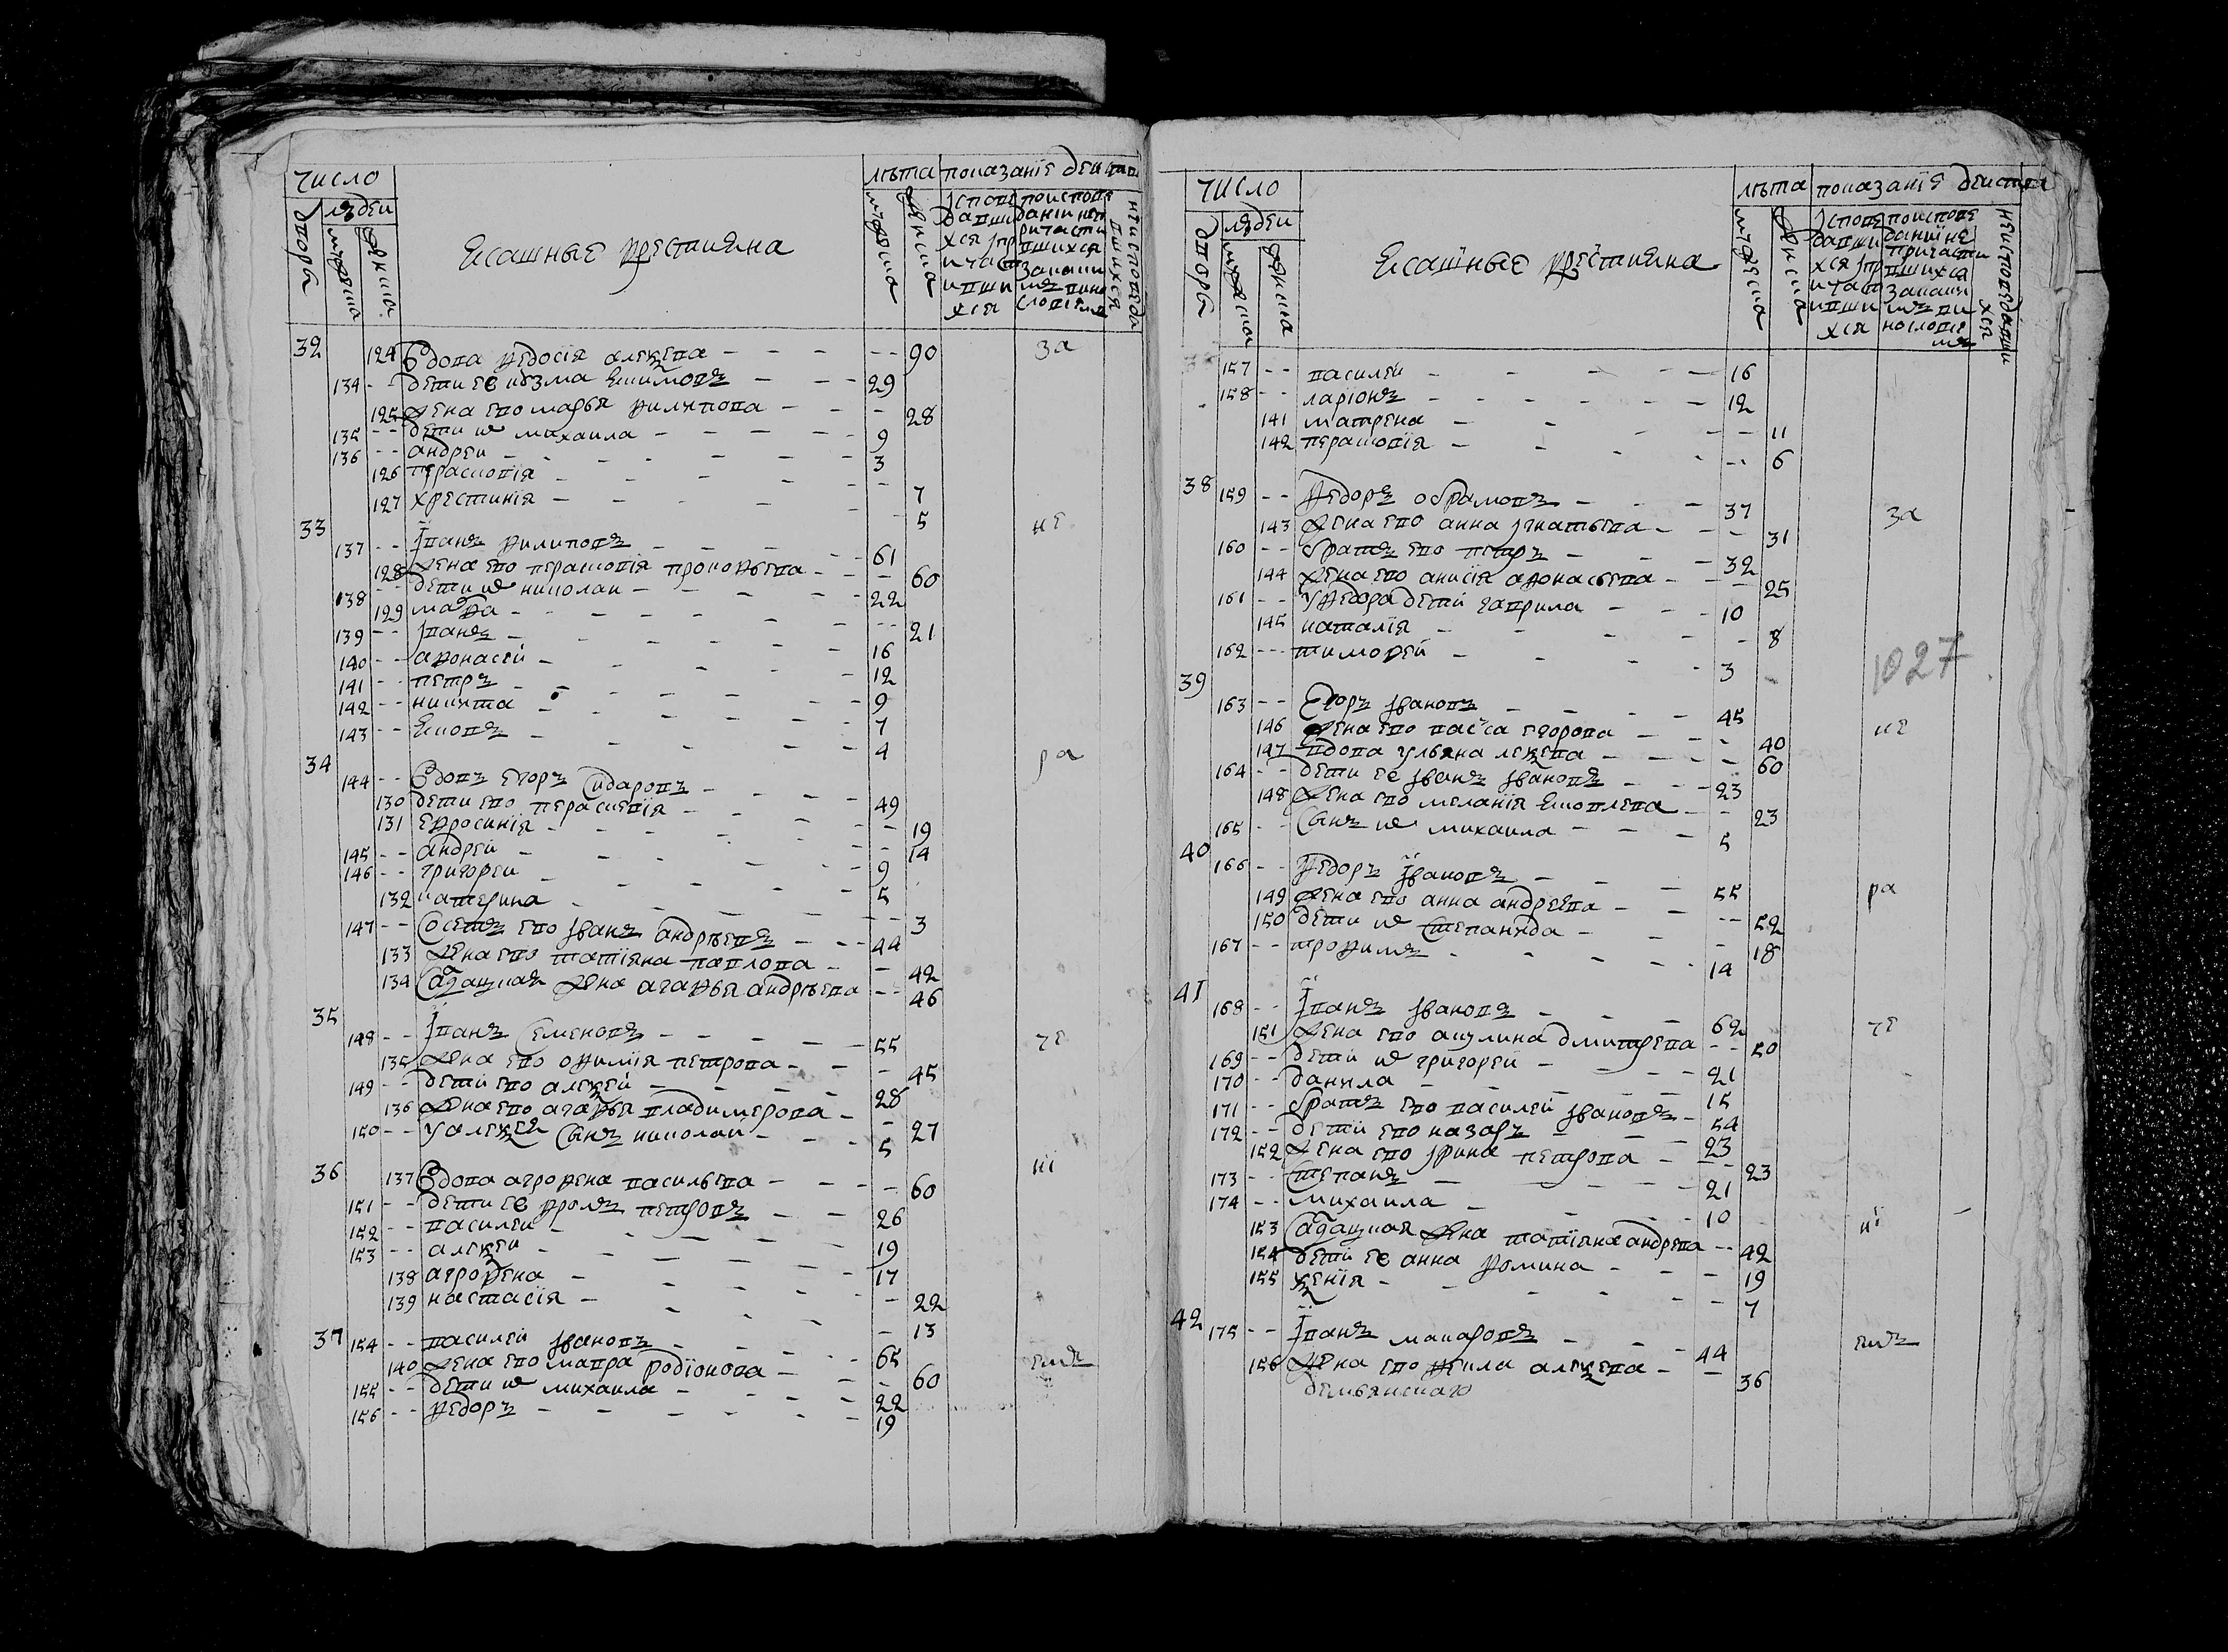 число
людеи
дворы
мужеска
женска
Ясашные крестьяна
лѣта
мужеска
женска
показанїе деиства
Исповѣдавшихся и причастившихся
по исповѣданїи не причастившихся за каким виннословием
неисповѣдавшихся
32 124 вдова федосїя алексѣева - - - 90 за
134 - - дети ее кузма якимовъ - - - 29
125 жена ево марья филипова - - - 28
135 - - дети их михаила - - - 9
136 - - андреи - - - 3
126 парасковїя - - - 7
127 хрестинїя - - - 5
33 не
137 - - Иванъ филиповъ - - - 61
128 жена ево парасковїя прокофьева - - - 60
138 - - дети их николаи - - - 22
129 мавра - - - 21
139 - - Иванъ - - - 16
140 - - афонасеи - - - 12
141 - - петръ - - - 9
142 - - никита - - - 7
143 - - яковъ - - - 4
34 ра
144 - - вдовъ егоръ сидаровъ - - - 49
130 дети ево параскевїя - - - 19
131 ефросинїя - - - 14
145 - - андреи - - - 9
146 - - григореи - - - 5
132 катерина - - - 3
147 - - Сосетъ ево иванъ андрѣевъ - - - 44
133 жена ево татїяна павлова - - 42
134 Салдацкая жена агафья андрѣева - - 46
35
148 - - Иванъ Семеновъ - - - 55 че
135 жена ево офимїя петрова - - - 45
149 - - дети ево алексеи - - - 28
136 жена ево агафья владимерова - - 27
150 - - у алексея сынъ николаи - - - 5
36 137 вдова агрофена васильева - - - 60 нї
151 - - дети ее фролъ петровъ - - 26
152 - - василеи - - - 19
153 - - алексеи - - - 17
138 агрофена - - - 22
139 настасїя - - - 13
37 154 - - василеи ивановъ - - - 65 емъ
140 жена ево мавра родїонова - - - 60
155 - - дети их михаила - - - 22
156 - - федоръ - - - 19
число
людеи
дворы
мужеска
женска
Ясашные крестьяна
лѣта
мужеска
женска
показанїе деиства
Исповѣдавшихся и причастившихся
по исповѣданїи не причастившихся за каким виннословием
неисповѣдавшихся
157 - - василеи - - - 16
158 - - ларїонъ - - - 12
141 матрена - - - 11
142 парасковїя - - - 6
38 159 - - федоръ обрамовъ - - - 37 за
143 жена ево анна игнатьева - - - 31
160 - - братъ ево петръ - - - 32
144 жена ево анисїя афонасьева - - - 25
161 - - у федора дети гаврила - - - 10
145 наталїя - - - 8
162 - - - тимофеи - - - 3
1027
39
163 - - Егоръ ивановъ - - - 45
146 жена ево васса егорова - - - 40 не
147 вдова ульяна лексева - - - 60
164 - - дети ее иванъ ивановъ - - 23
148 жена ево меланїя яковлева - - 23
165 - - Сынъ их михаила - - - 5
40
166 - - федоръ ивановъ - - - 55
149 жена ево анна андреева - - - 52 ра
150 дети их степанида - - - 18
167 - - трофимъ - - - 14
41
168 - - Иванъ ивановъ - - - 62
151 жена ево акулина дмитрева - - 50 че
169 - - дети их григореи - - - 21
170 - - данила - - - 15
171 - - братъ ево василеи ивановъ - 54
172 - - дети ево назаръ - - 23
152 жена ево ирина петрова - - - 23
173 - - степанъ - - - 21
174 - - михаила - - - 10
153 Салдацкая жена татїяна андрева - - 42 нї
154 дети ее анна фомина - - - 19
155 ксенїя - - - 7
42
175 - - Иванъ макаровъ - - - 44 емъ
156 жена ево фекла алексева - - 36
демьянскаго